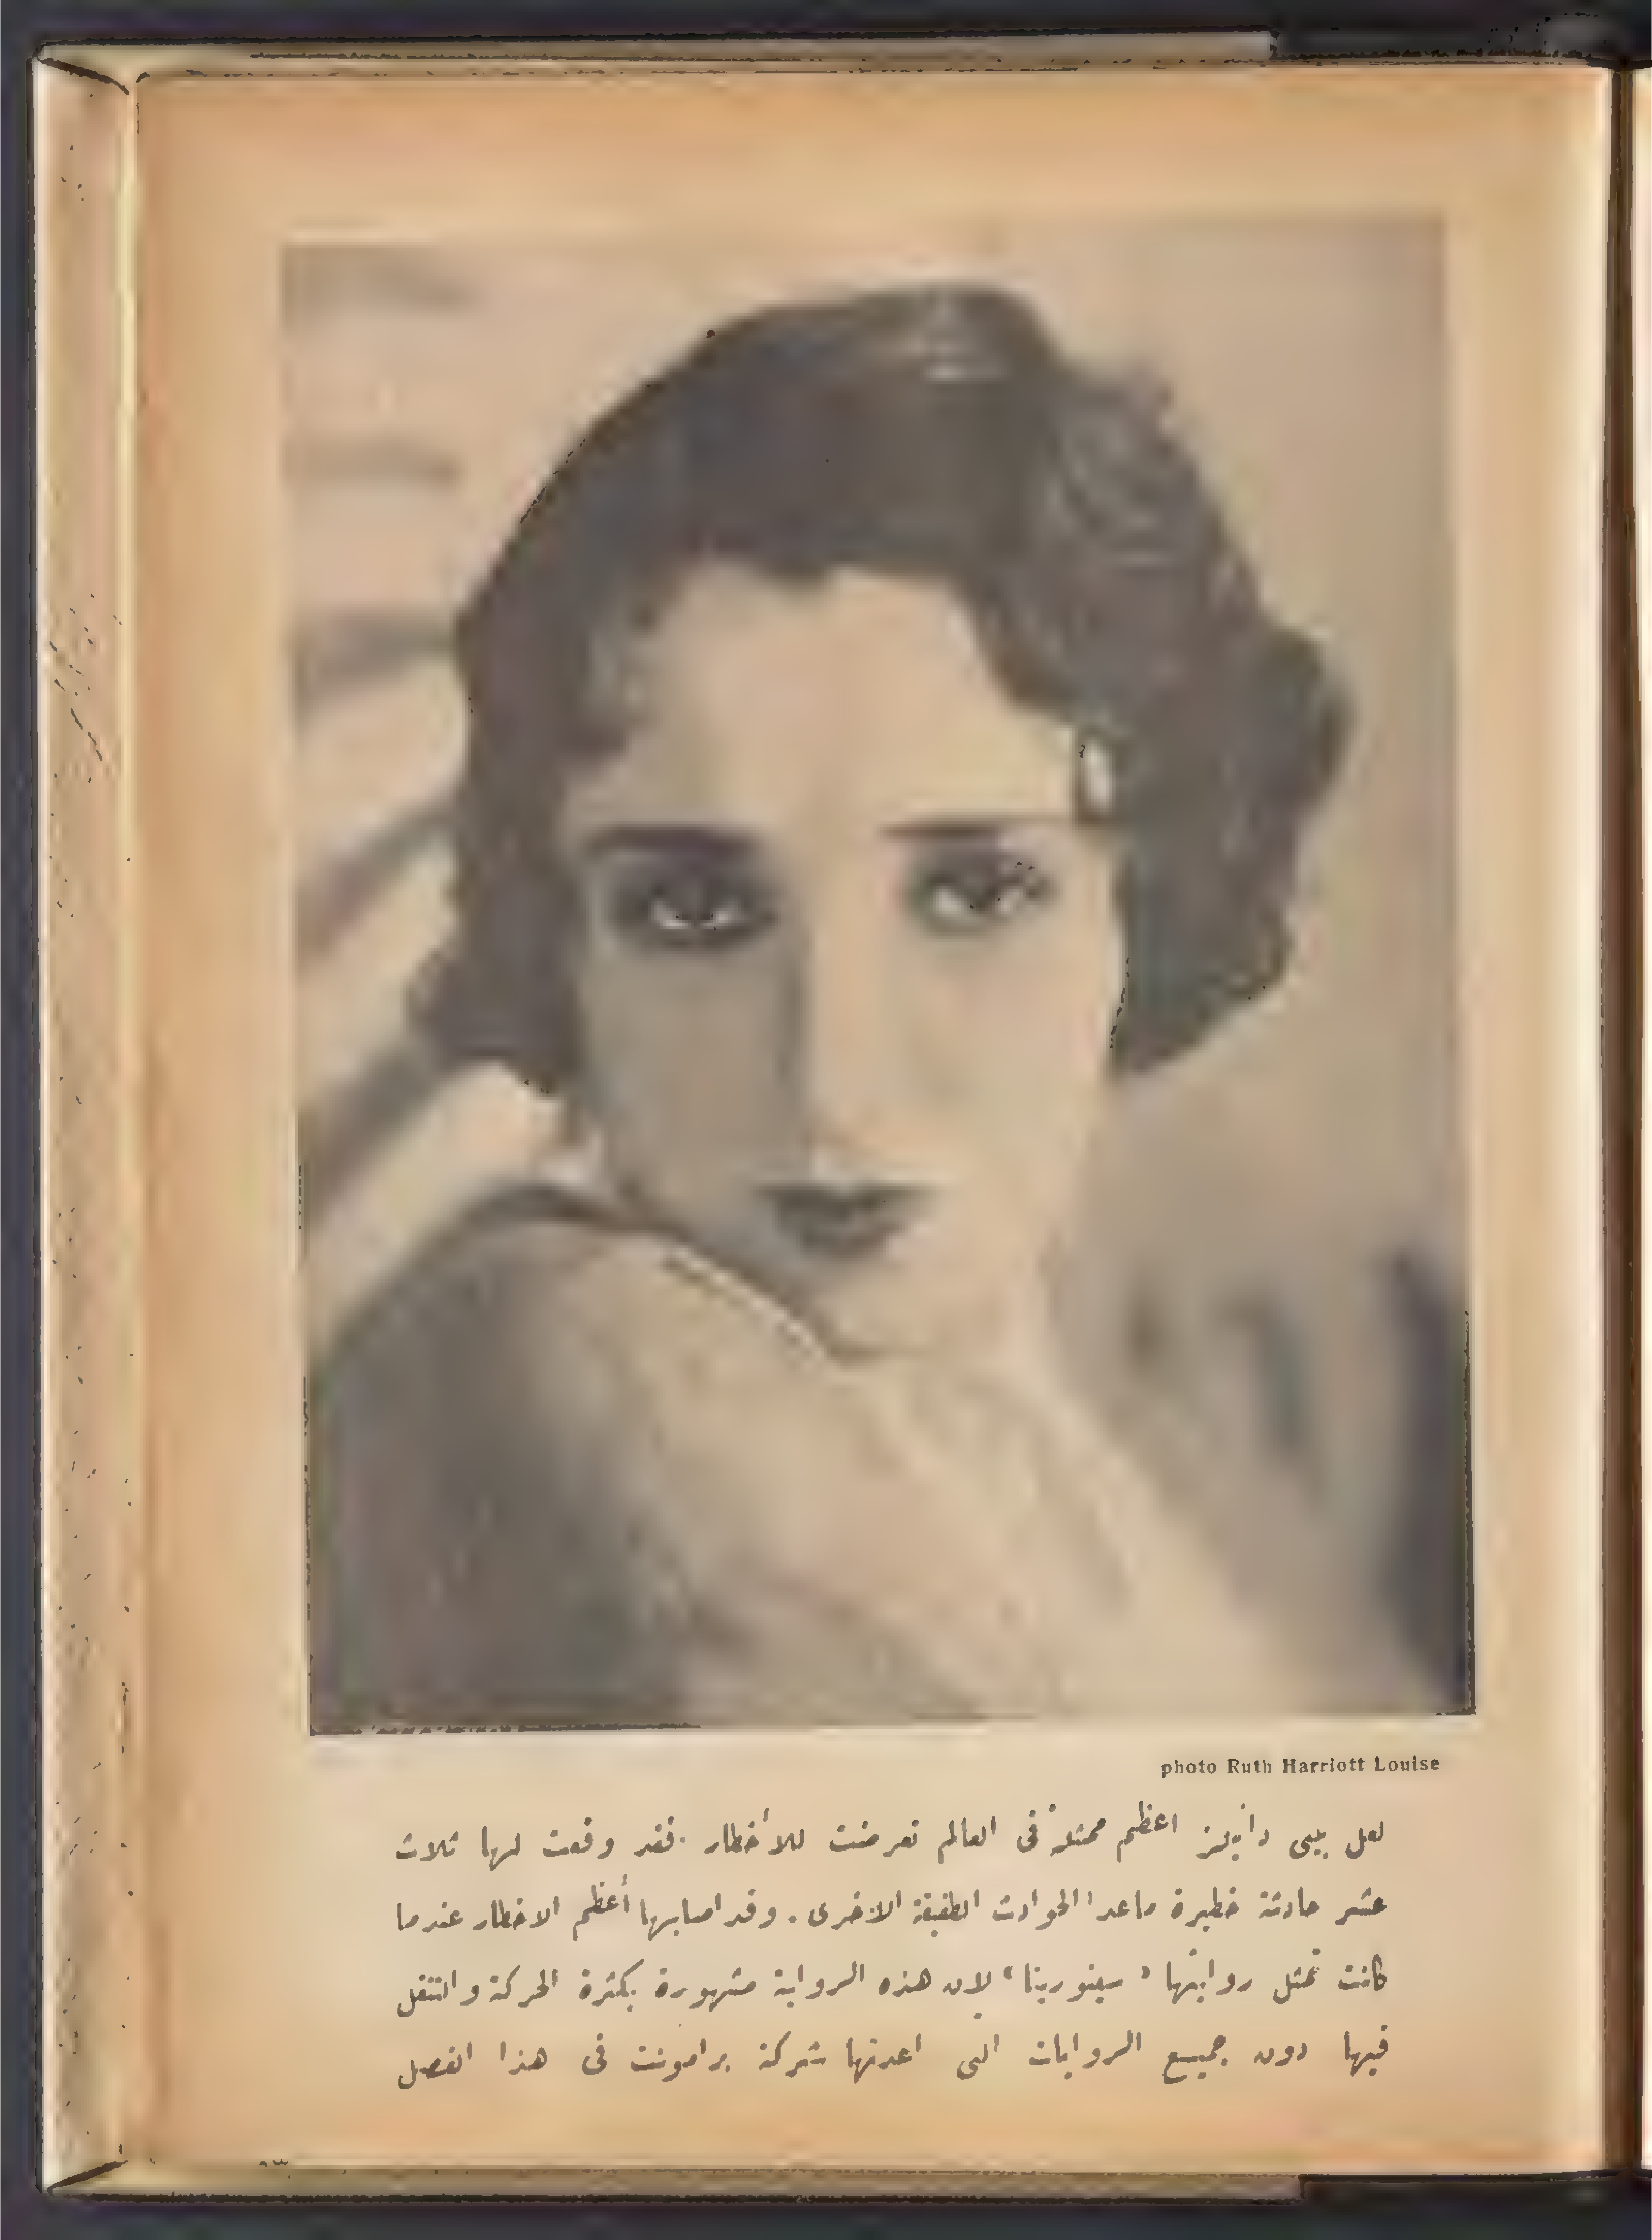 photo Ruth Harriott Louise
لعل بيبى دانيلز اعظم ممثلة فى العالم تعرضت للأخطار . فقد وقعت لها ثلاث
عشر حادثة خطيرة ماعدا الحوادث الطفيفة الاخرى . وقد اصابها أعظم الاخطار عندما
كانت تمثل روايتها « سينوريتا » لان هذه الرواية مشهورة بكثرة الحركة والتنقل
فيها دون جميع الروايات التى اعدتها شركة برامونت فى هذا الفصل